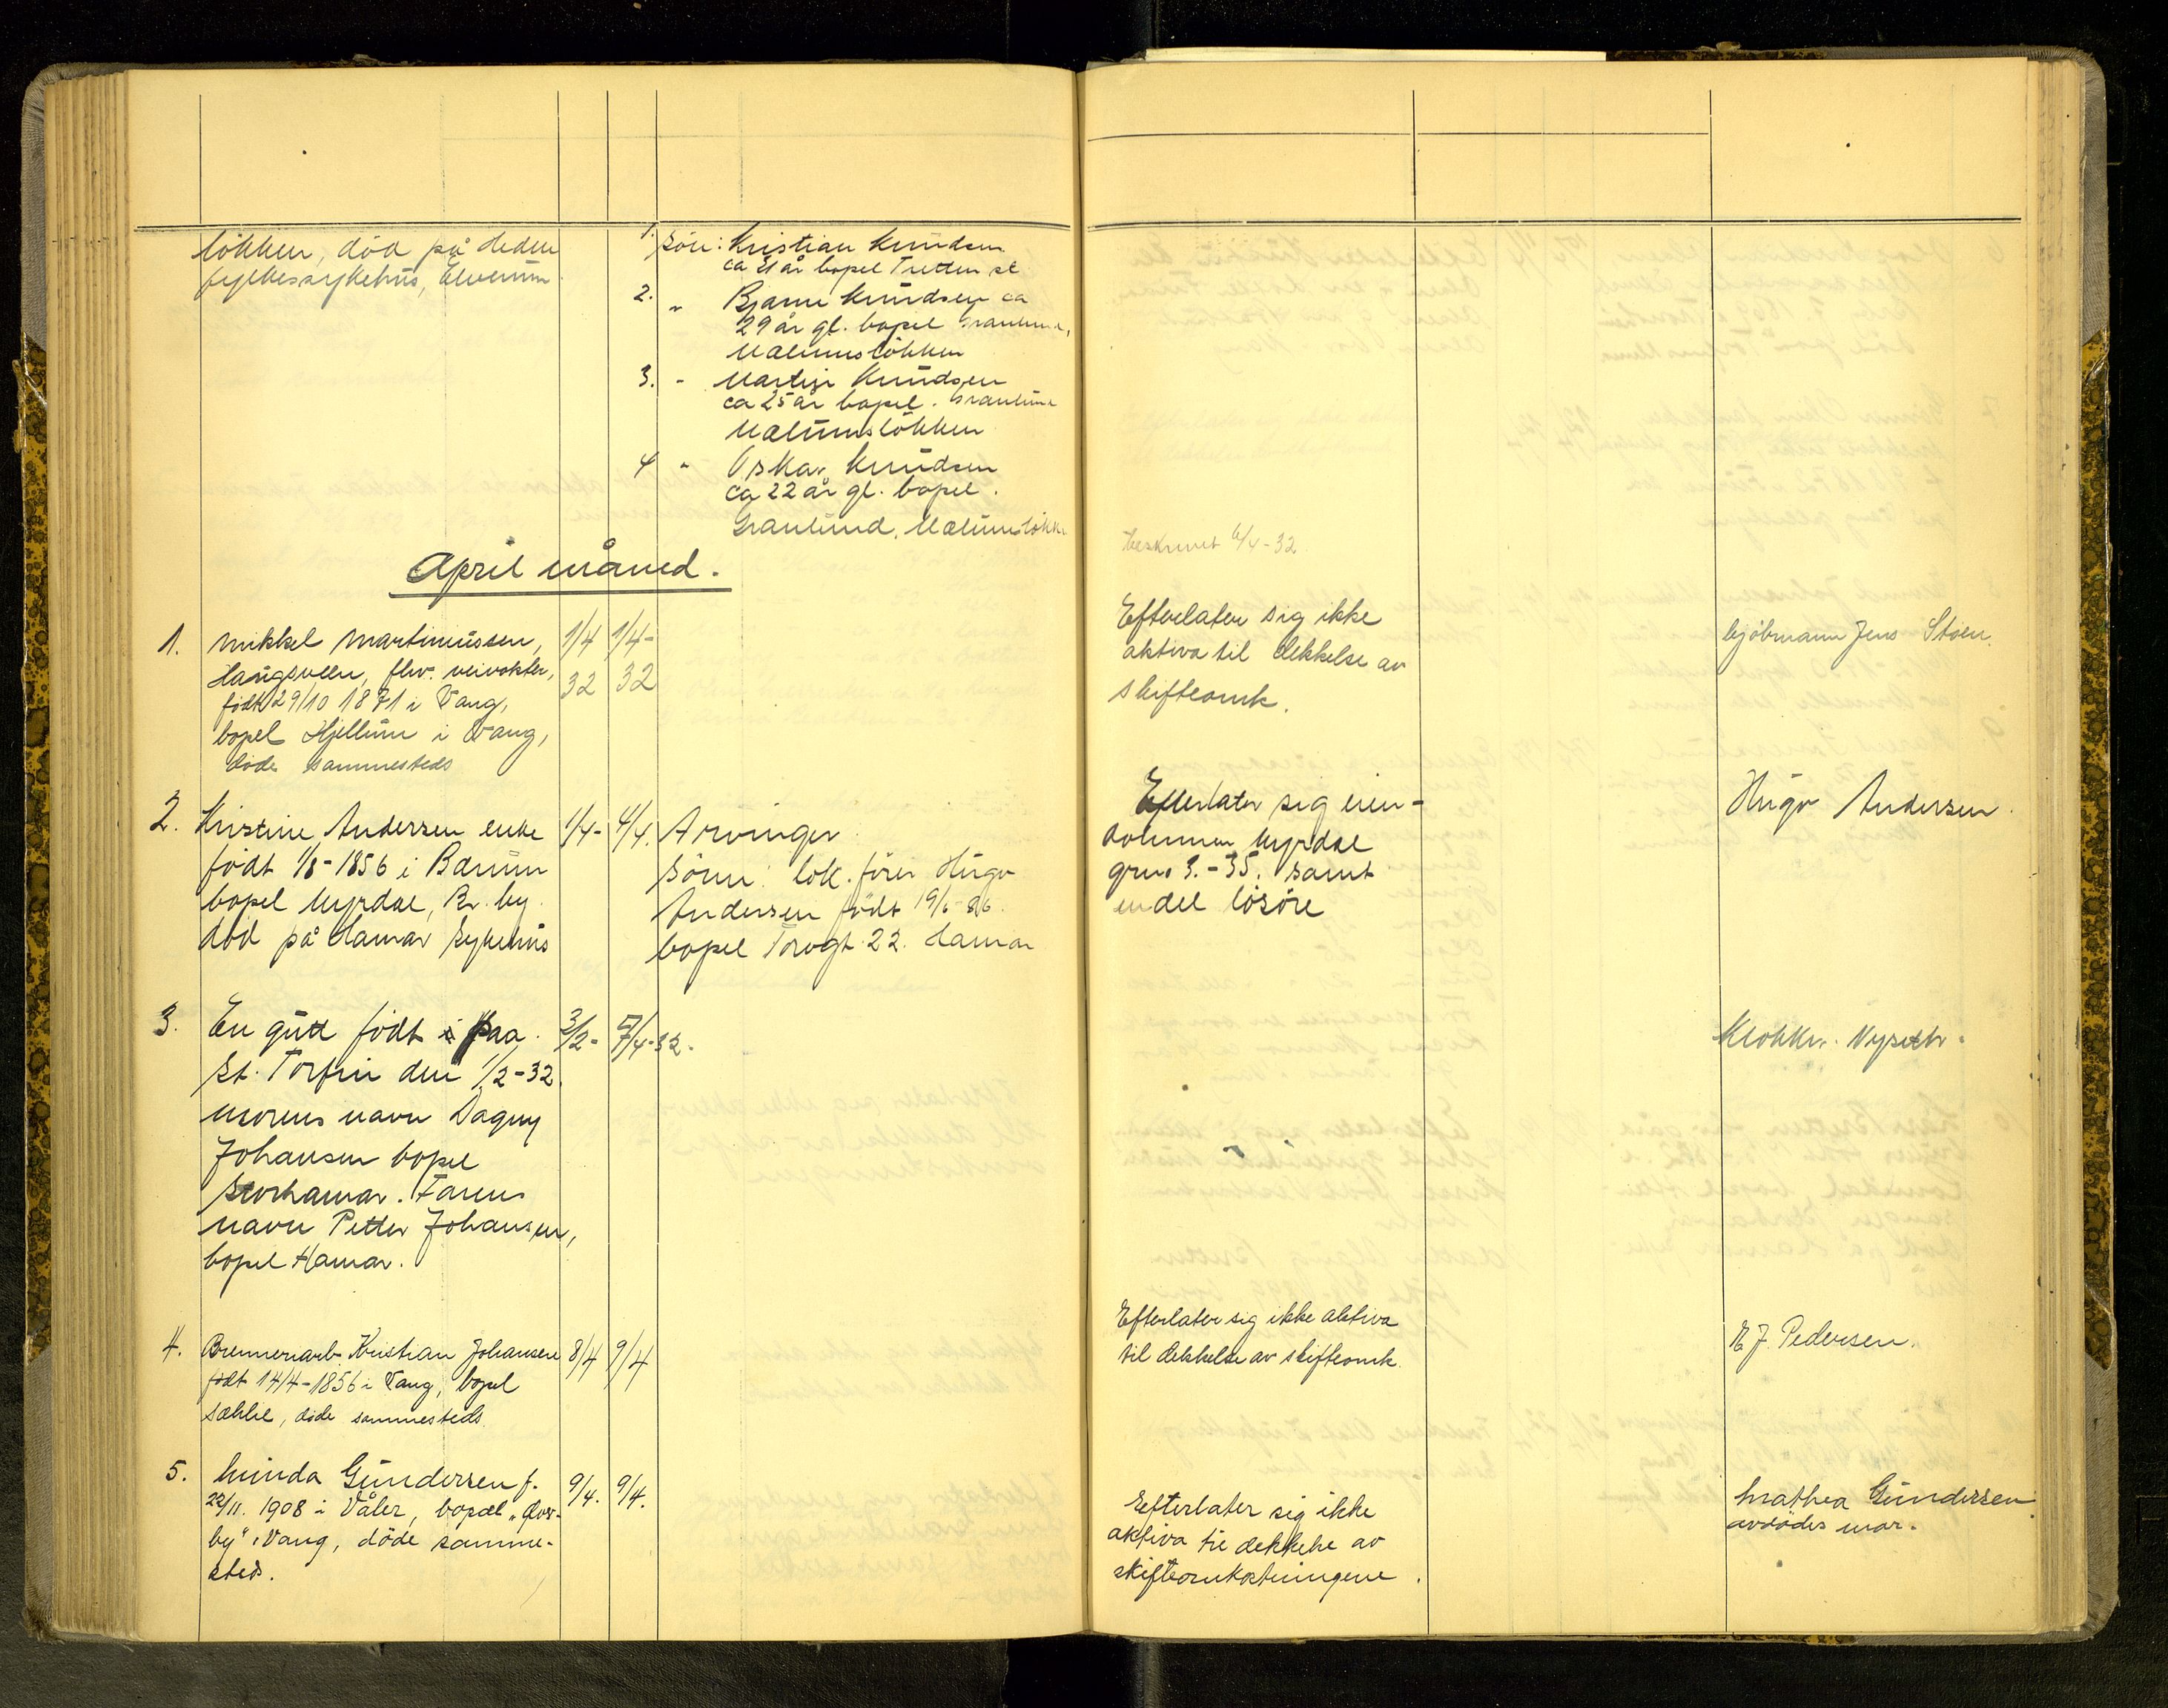 løkken, död på Hedm
fylkessykehus, Elverum
1. Sön: Kristian Knudsen
ca 31 år bopel Tretten st
2. " Bjarne Knudsen ca
29 år gl. bopel Granlund,
Mælumsløkken
3. " Martin Knudsen
ca 25 år bopel. Granlund
Mælumsløkken
4 " Oskar Knudsen
ca 22 år gl. bopel.
Granlund, Mælumsløkke
beskrevet 6/4-32
April måned.
1. Mikkel Martinussen, 1/4 1/4-
Haugsveen, fhv. veivokter, 32 32
født 29/10 1871 i Vang,
bopel Hjellum i Vang,
døde sammesteds
Efterlater sig ikke
aktiva til dekkelse av
skifteomk.
Kjöbmann Jens Stoen.
2. Kristine Andersen enke 1/4- 4/4.
födt 1/8-1856 i Bærum
bopel Myrdal, Br. by.
död på Hamar Sykehus
Arvinger
Sönn: lok. förer Hugo
Andersen födt 19/6-86.
bopel Torvgt. 22. Hamar
Efterlater sig eien-
dommen Myrdal
grno 3.-35. samt
endel lösöre
Hugo Andersen.
3. En gutt födt i paa 3/2- 7/4-32.
St. Torfin den 1/2-32.
Morens navn Dagny
Johansen bopel
Storhamar. Farens
navn Petter Johansen,
bopel Hamar.
Klokker. Nyseth.
4. Brenneriarb. Kristian Johansen 8/4 9/4
født 14/4-1856 i Vang, bopel
Sælid, døde sammesteds.
Efterlater sig ikke aktiva
til dekkelse av skifteomk.
E J. Pedersen.
5. Minda Gundersen f. 9/4. 9/4.
22/11. 1908 i Våler, bopæl "Över-
by" i Vang, döde samme-
steds.
Efterlater sig ikke
aktiva til dekkelse av
skifteomkostningene.
Mathea Gundersen
avdödes mor.